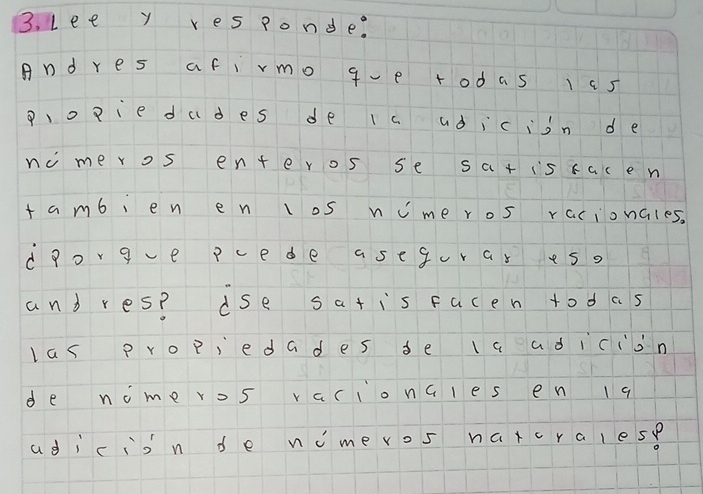 3. Lee y responde:
Andres afirmo que todas las
propiedades de la adición de
números enteros se satisfacen
tambien en los números racionales.
¿Porque puede asegurar eso
andres? ¿Se satisfacen todas
las propiedades de la adición
de números racionales en la
adición de números naturales?